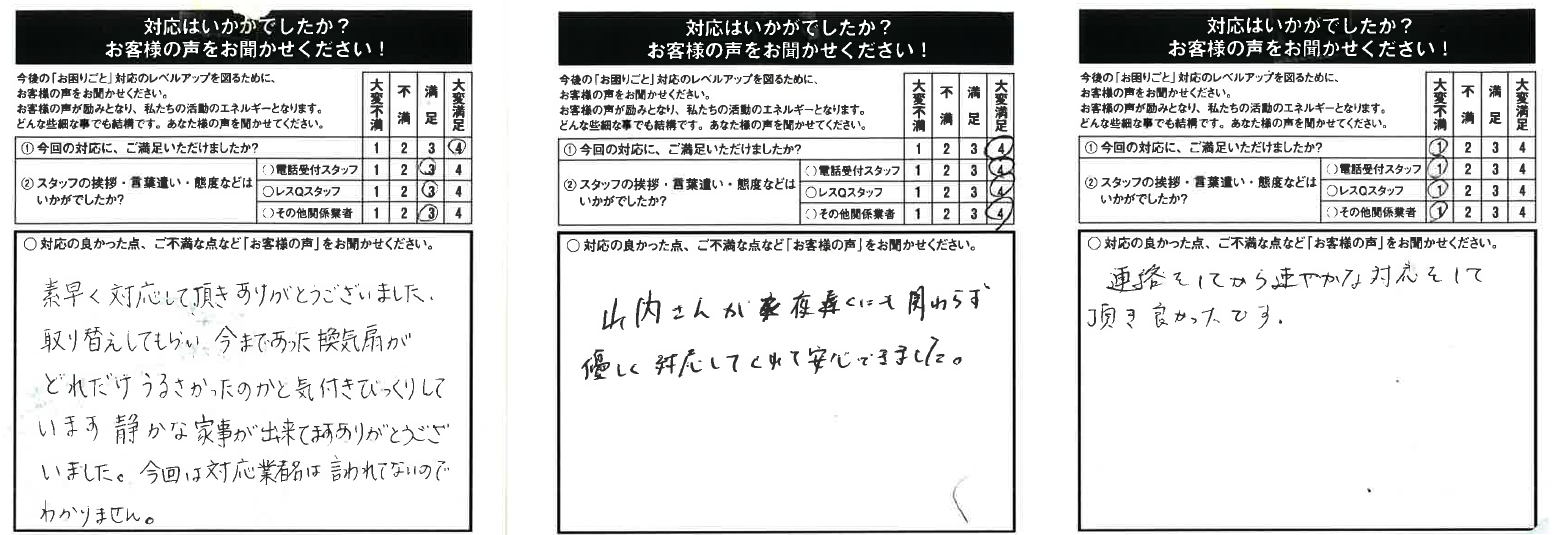 対応はいかがでしたか？
お客様の声をお聞かせください！
今後の「お困りごと」対応のレベルアップを図るために、
お客様の声をお聞かせください。
お客様の声が励みとなり、私たちの活動のエネルギーとなります。
どんな些細な事でも結構です。あなた様の声を聞かせてください。
大変不満 不満 満足 大変満足
① 今回の対応に、ご満足いただけましたか？ 1 2 3 4
② スタッフの挨拶・言葉遣い・態度などは
いかがでしたか？
○電話受付スタッフ 1 2 3 4
○レスQスタッフ 1 2 3 4
○その他関係業者 1 2 3 4
○ 対応の良かった点、ご不満な点など「お客様の声」をお聞かせください。
素早く対応して頂きありがとうございました、
取り替えしてもらい 今まであった換気扇が
どれだけうるさかったのかと気付きびっくりして
います 静かな家事が出来てますありがとうござ
いました。今回は対応業者名は言われてないので
わかりません。
対応はいかがでしたか？
お客様の声をお聞かせください！
今後の「お困りごと」対応のレベルアップを図るために、
お客様の声をお聞かせください。
お客様の声が励みとなり、私たちの活動のエネルギーとなります。
どんな些細な事でも結構です。あなた様の声を聞かせてください。
大変不満 不満 満足 大変満足
① 今回の対応に、ご満足いただけましたか？ 1 2 3 4
② スタッフの挨拶・言葉遣い・態度などは
いかがでしたか？
○電話受付スタッフ 1 2 3 4
○レスQスタッフ 1 2 3 4
○その他関係業者 1 2 3 4
○ 対応の良かった点、ご不満な点など「お客様の声」をお聞かせください。
山内さんが夜遅くにも関わらず
優しく対応してくれて安心できました。
対応はいかがでしたか？
お客様の声をお聞かせください！
今後の「お困りごと」対応のレベルアップを図るために、
お客様の声をお聞かせください。
お客様の声が励みとなり、私たちの活動のエネルギーとなります。
どんな些細な事でも結構です。あなた様の声を聞かせてください。
大変不満 不満 満足 大変満足
① 今回の対応に、ご満足いただけましたか？ 1 2 3 4
② スタッフの挨拶・言葉遣い・態度などは
いかがでしたか？
○電話受付スタッフ 1 2 3 4
○レスQスタッフ 1 2 3 4
○その他関係業者 1 2 3 4
○ 対応の良かった点、ご不満な点など「お客様の声」をお聞かせください。
連絡をしてから速やかな対応をして
頂き良かったです.